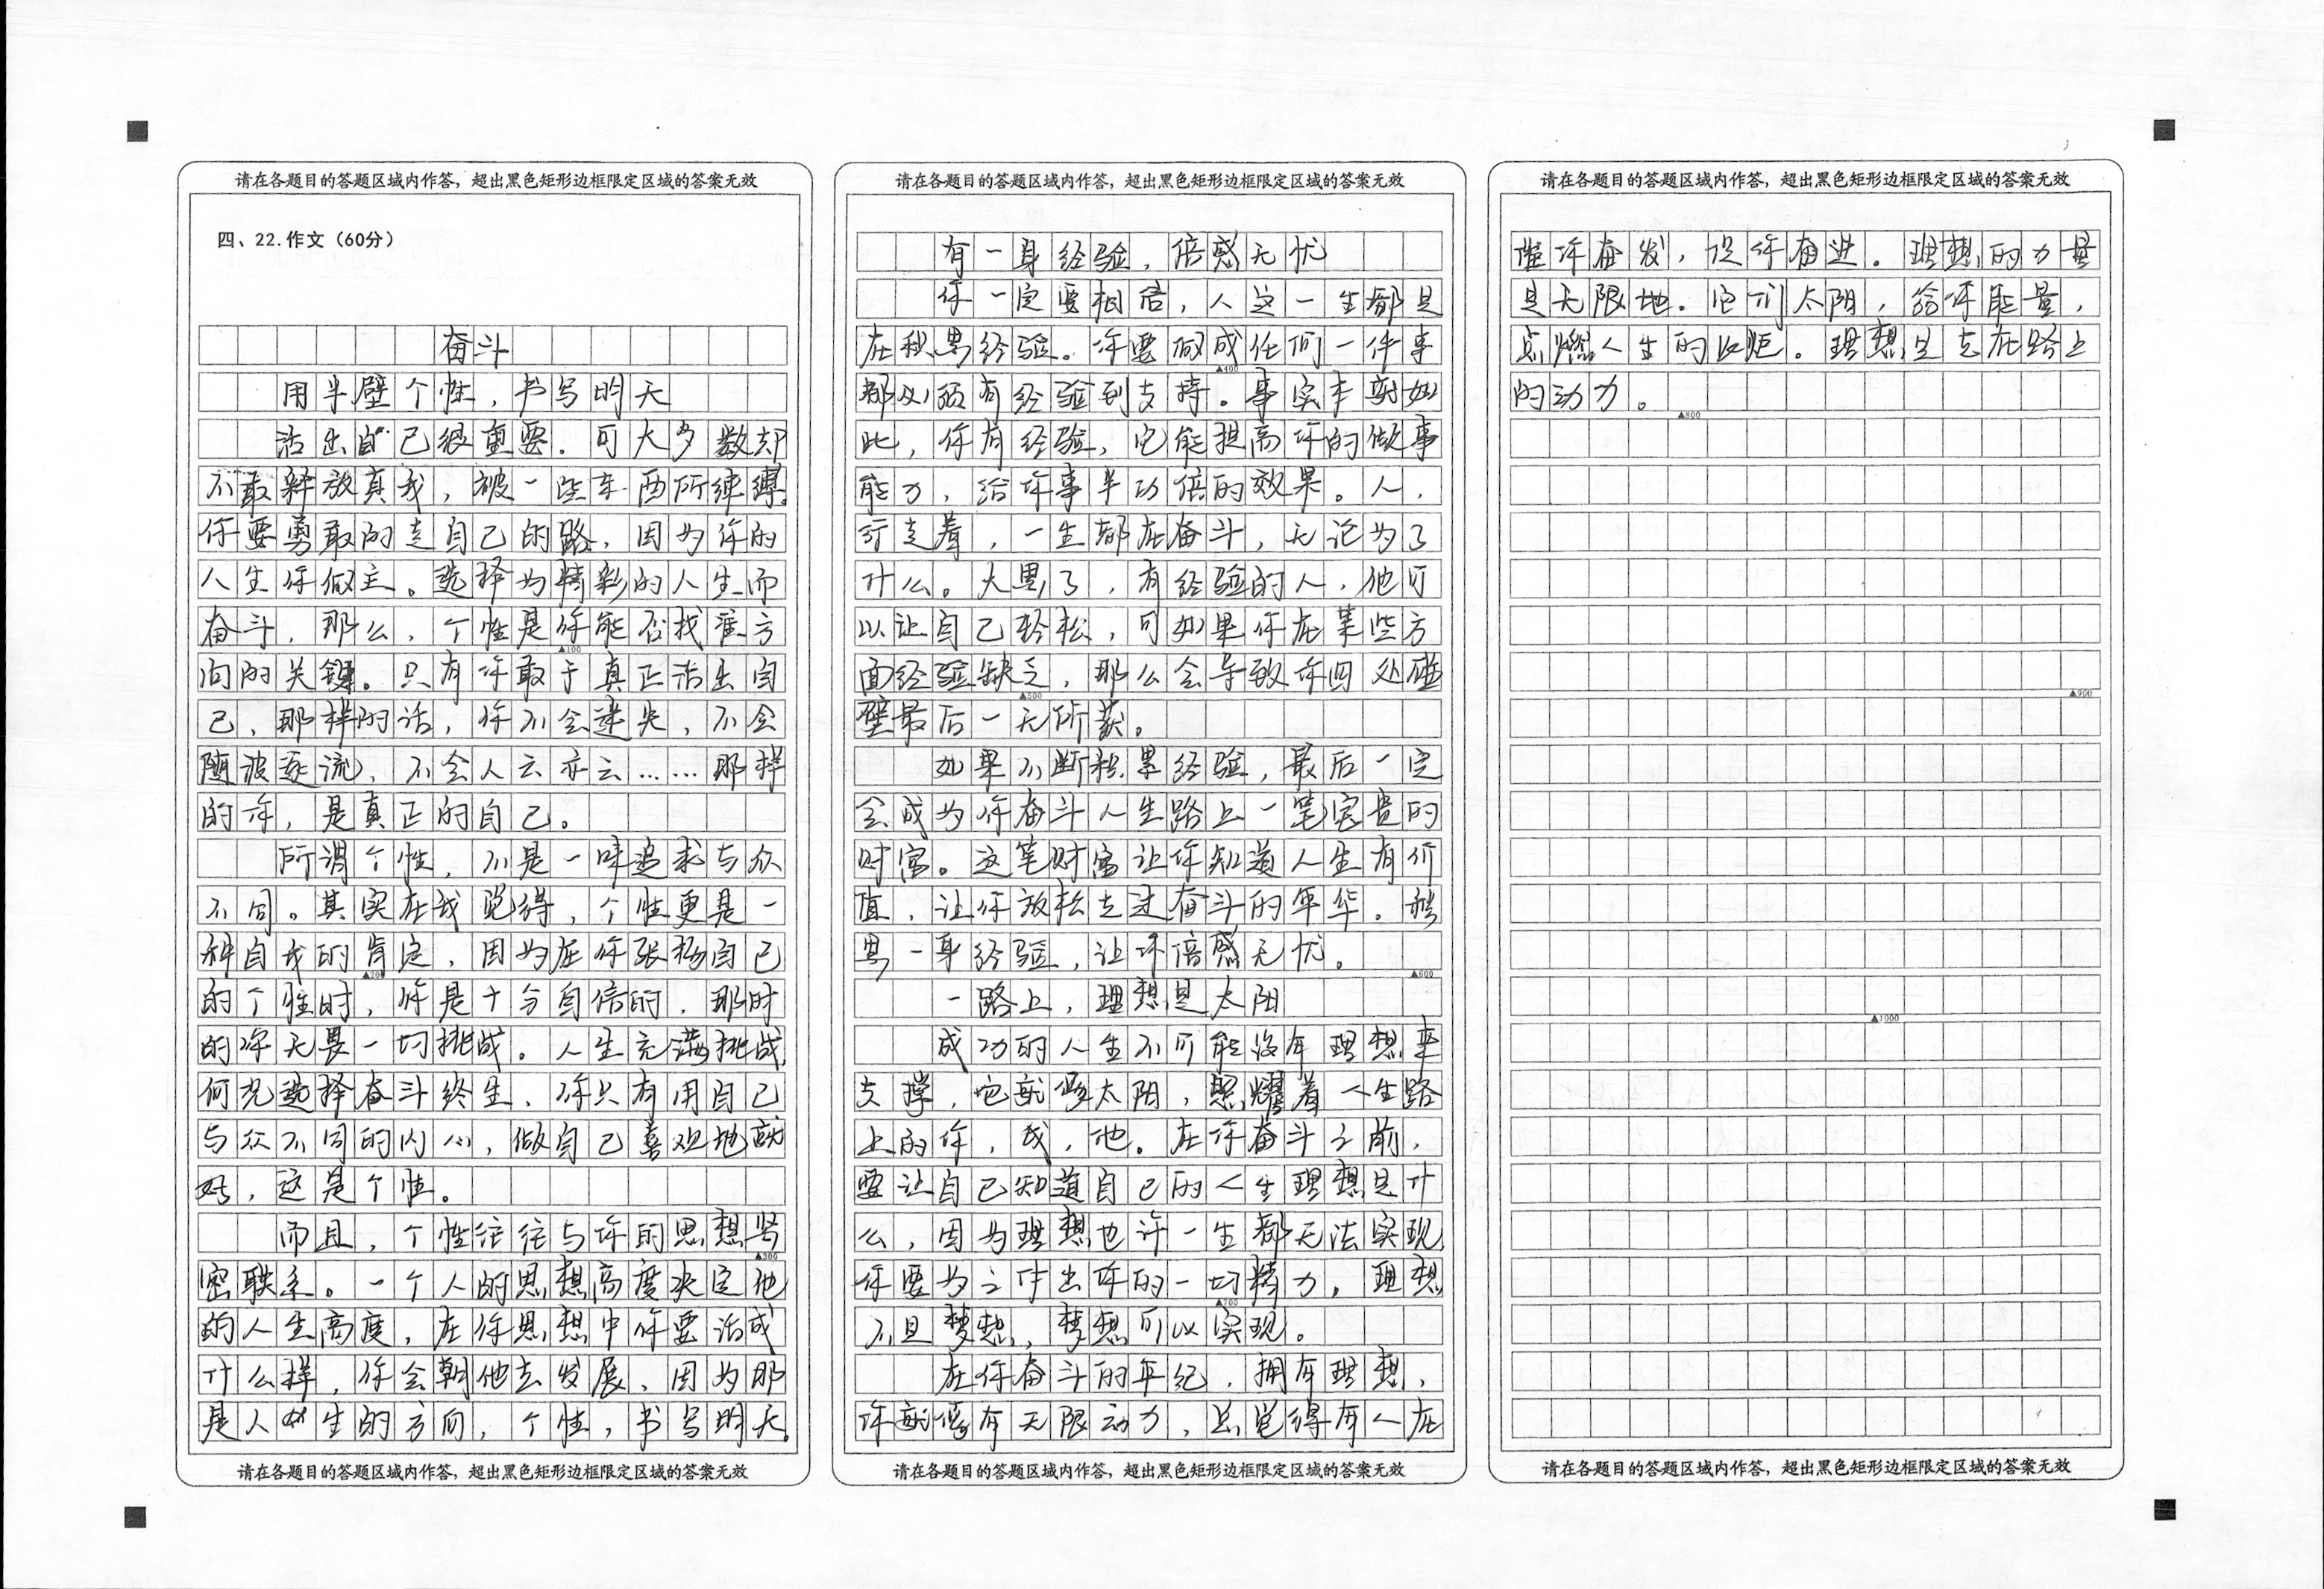 请在各题目的答题区域内作答，超出黑色矩形边框限定区域的答案无效
四、22.作文（60分）
奋斗
用半壁个性，书写明天
活出自己很重要．可大多数却
不敢释放真我，被一些东西所束缚。
你要勇敢的走自己的路，因为你的
人生你做主。选择为精彩的人生而
奋斗，那么，个性是你能否找准方
▲100
向的关键。只有你敢于真正活出自
己，那样的话，你不会迷失，不会
随波逐流，不会人云亦云……那样
的你，是真正的自己。
所谓个性，不是一味追求与众
不同。其实在我觉得，个性更是一
种自我的肯定，因为在你张扬自己
▲200
的个性时，你是十分自信的，那时
的你无畏一切挑战。人生充满挑战，
何况选择奋斗终生，你只有用自己
与众不同的内心，做自己喜欢地就
好，这是个性。
而且，个性往往与你的思想紧
▲300
密联系。一个人的思想高度决定他
的人生高度，在你思想中你要活成
什么样，你会朝他去发展，因为那
是人生的方向，个性，书写明天。
请在各题目的答题区域内作答，超出黑色矩形边框限定区域的答案无效
请在各题目的答题区域内作答，超出黑色矩形边框限定区域的答案无效
有一身经验，倍感无忧
你一定要相信，人这一生都是
在积累经验．你要做成任何一件事
▲400
都必须有经验到支持。事实本就如
此，你有经验，它能提高你的做事
能力，给你事半功倍的效果。人，
行走着，一生都在奋斗，无论为了
什么。太累了，有经验的人，他可
以让自己轻松，可如果你在某些方
面经验缺乏，那么会导致你四处碰
▲500
壁最后一无所获。
如果不断积累经验，最后一定
会成为你奋斗人生路上一笔宝贵的
财富。这笔财富让你知道人生有价
值，让你放松走过奋斗的年华。积
累一身经验，让你倍感无忧。
▲600
一路上，理想是太阳
成功的人生不可能没有理想来
支撑，它就像太阳，照耀着人生路
上的你，我，他。在你奋斗之前，
要让自己知道自己的人生理想是什
么，因为理想也许一生都无法实现，
你要为之付出你的一切精力，理想
▲700
不且梦想，梦想可以实现。
在你奋斗的年纪，拥有理想，
你就像有无限动力，总觉得有人在
请在各题目的答题区域内作答，超出黑色矩形边框限定区域的答案无效
请在各题目的答题区域内作答，超出黑色矩形边框限定区域的答案无效
催你奋发，促你奋进。理想的力量
是无限地．它们太阳，给你能量，
点燃人生的火炬。理想是走在路上
的动力。
▲800
▲900
▲1000
请在各题目的答题区域内作答，超出黑色矩形边框限定区域的答案无效